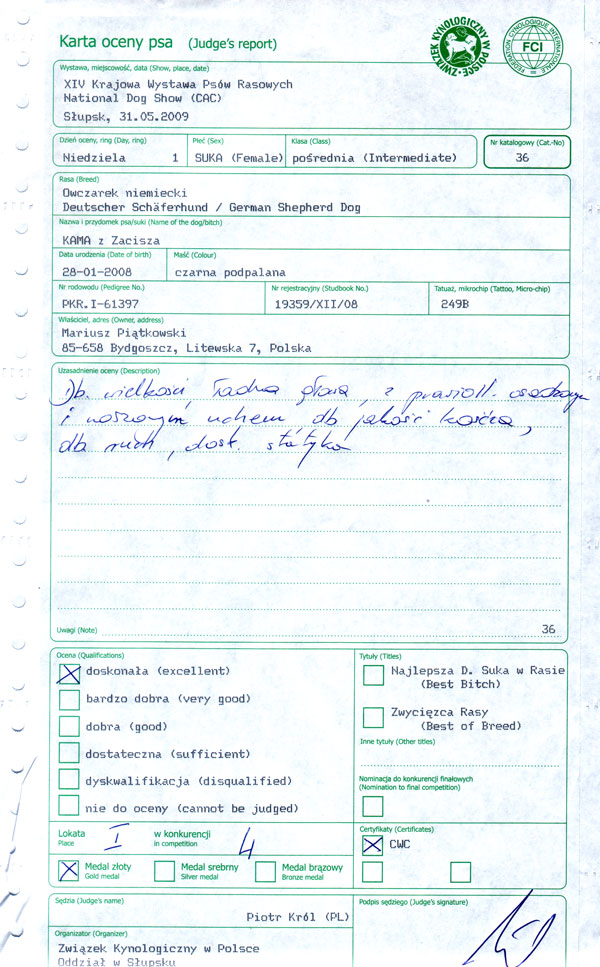 Karta oceny psa (Judge's report)
ZWIĄZEK KYNOLOGICZNY W POLSCE
FEDERATION CYNOLOGIQUE INTERNATIONALE
FCI
Wystawa, miejscowość, data (Show, place, date)
XIV Krajowa Wystawa Psów Rasowych
National Dog Show (CAC)
Słupsk, 31.05.2009
Dzień oceny, ring (Day, ring) Płeć (Sex) Klasa (Class) Nr katalogowy (Cat.-No)
Niedziela 1 SUKA (Female) pośrednia (Intermediate) 36
Rasa (Breed)
Owczarek niemiecki
Deutscher Schäferhund / German Shepherd Dog
Nazwa i przydomek psa/suki (Name of the dog/bitch)
KAMA z Zacisza
Data urodzenia (Date of birth) Maść (Colour)
28-01-2008 czarna podpalana
Nr rodowodu (Pedigree No.) Nr rejestracyjny (Studbook No.) Tatuaż, mikrochip (Tattoo, Micro-chip)
PKR.I-61397 19359/XII/08 249B
Właściciel, adres (Owner, address)
Mariusz Piątkowski
85-658 Bydgoszcz, Litewska 7, Polska
Uzasadnienie oceny (Description)
Db. wielkości, ładna głowa, z
i uchem db jakość kośćca,
db ruch, dost. statyka
Uwagi (Note) 36
Ocena (Qualifications) Tytuły (Titles)
doskonała (excellent) Najlepsza D. Suka w Rasie
(Best Bitch)
bardzo dobra (very good)
dobra (good) Zwycięzca Rasy
(Best of Breed)
dostateczna (sufficient) Inne tytuły (Other titles)
dyskwalifikacja (disqualified) Nominacja do konkurencji finałowych
(Nomination to final competition)
nie do oceny (cannot be judged)
Lokata I w konkurencji 4 Certyfikaty (Certificates)
Place in competition CWC
Medal złoty Medal srebrny Medal brązowy
Gold medal Silver medal Bronze medal
Sędzia (Judge's name) Podpis sędziego (Judge's signature)
Piotr Król (PL)
Organizator (Organizer)
Związek Kynologiczny w Polsce
Oddział w Słupsku